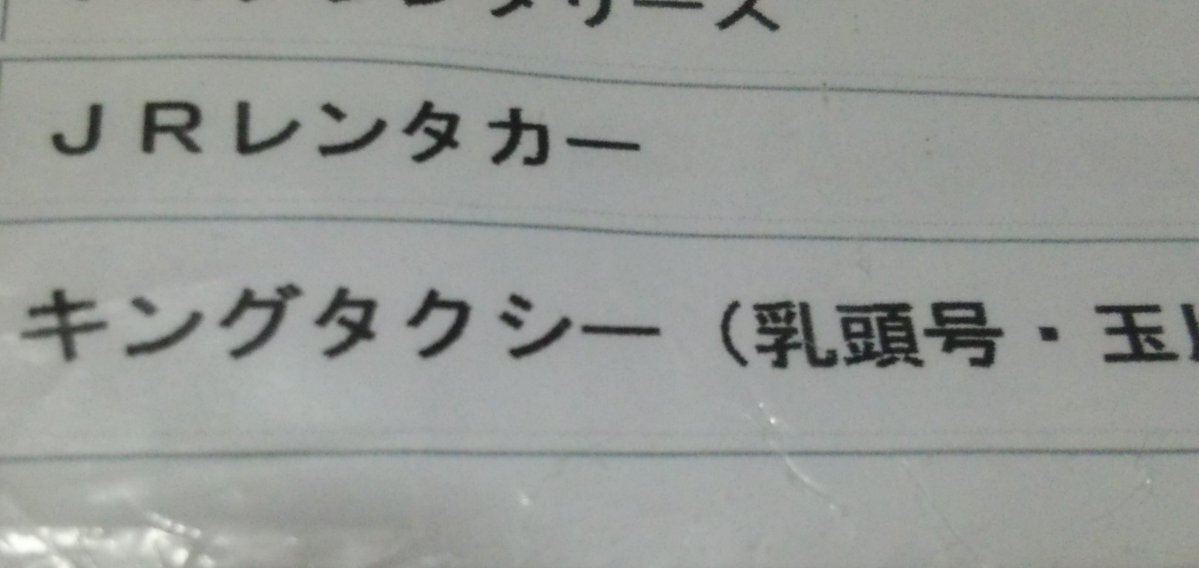 リース
ＪＲレンタカー
キングタクシー（乳頭号・玉